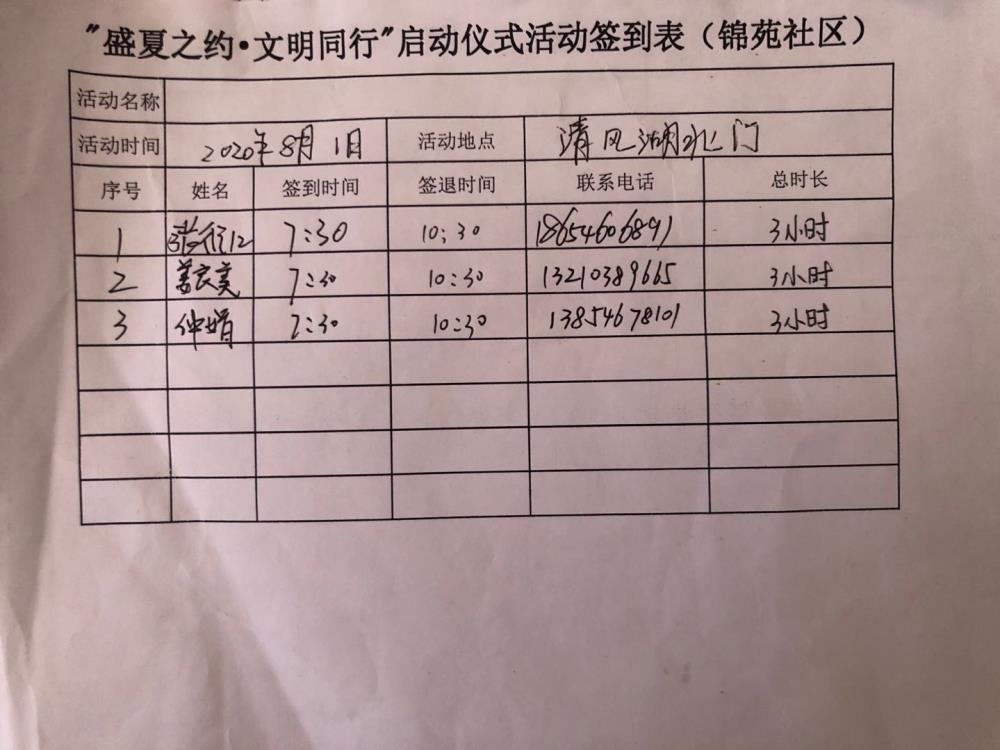 "盛夏之约•文明同行"启动仪式活动签到表（锦苑社区）
活动名称
活动时间 2020年8月1日 活动地点 清风湖北门
序号 姓名 签到时间 签退时间 联系电话 总时长
1 7:30 10:30 18654606891 3小时
2 姜衣美 7:30 10:30 13210389665 3小时
3 仲娟 7:30 10:30 13854678101 3小时